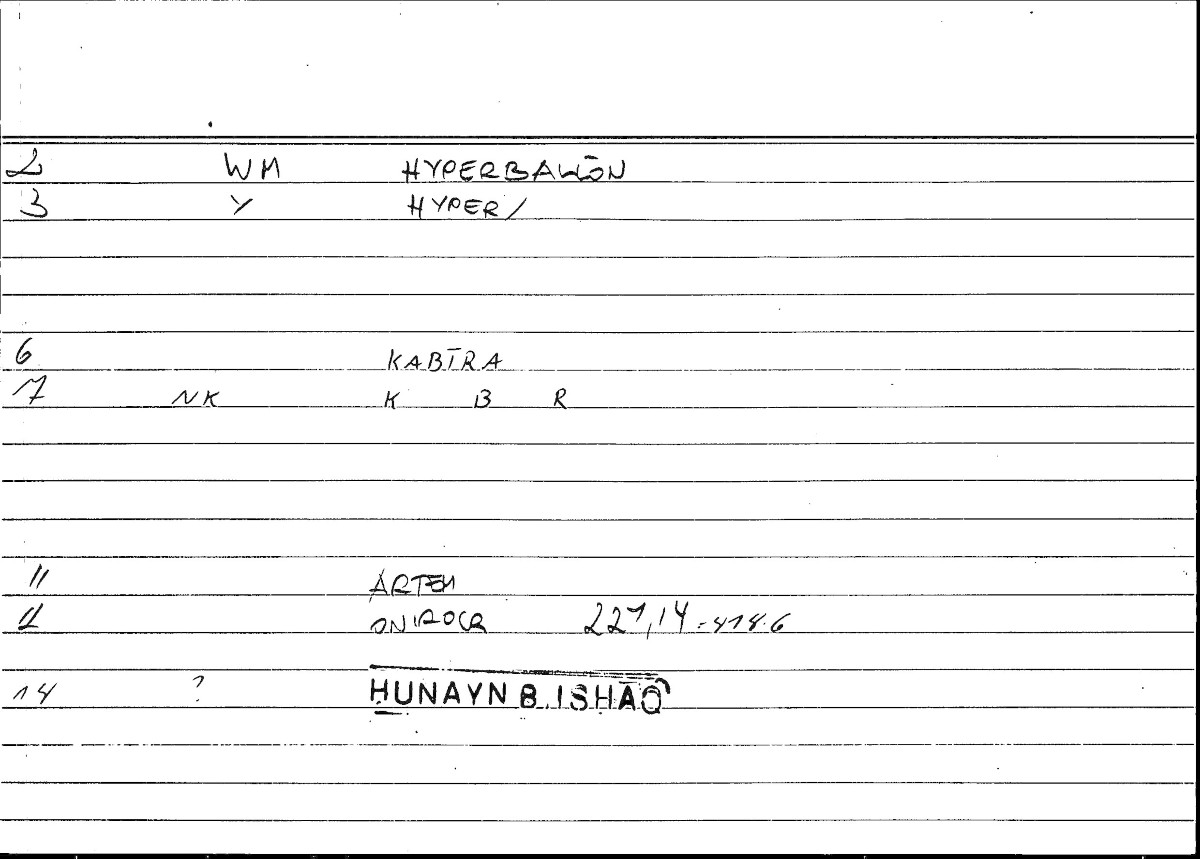 2 WM HYPERBALLŌN
3 Y HYPER/
6 KABĪRA
7 NK K B R
11 ARTEM
12 ONIROCR 227,14-414.6
14 ? HUNAYN B. ISHĀQ